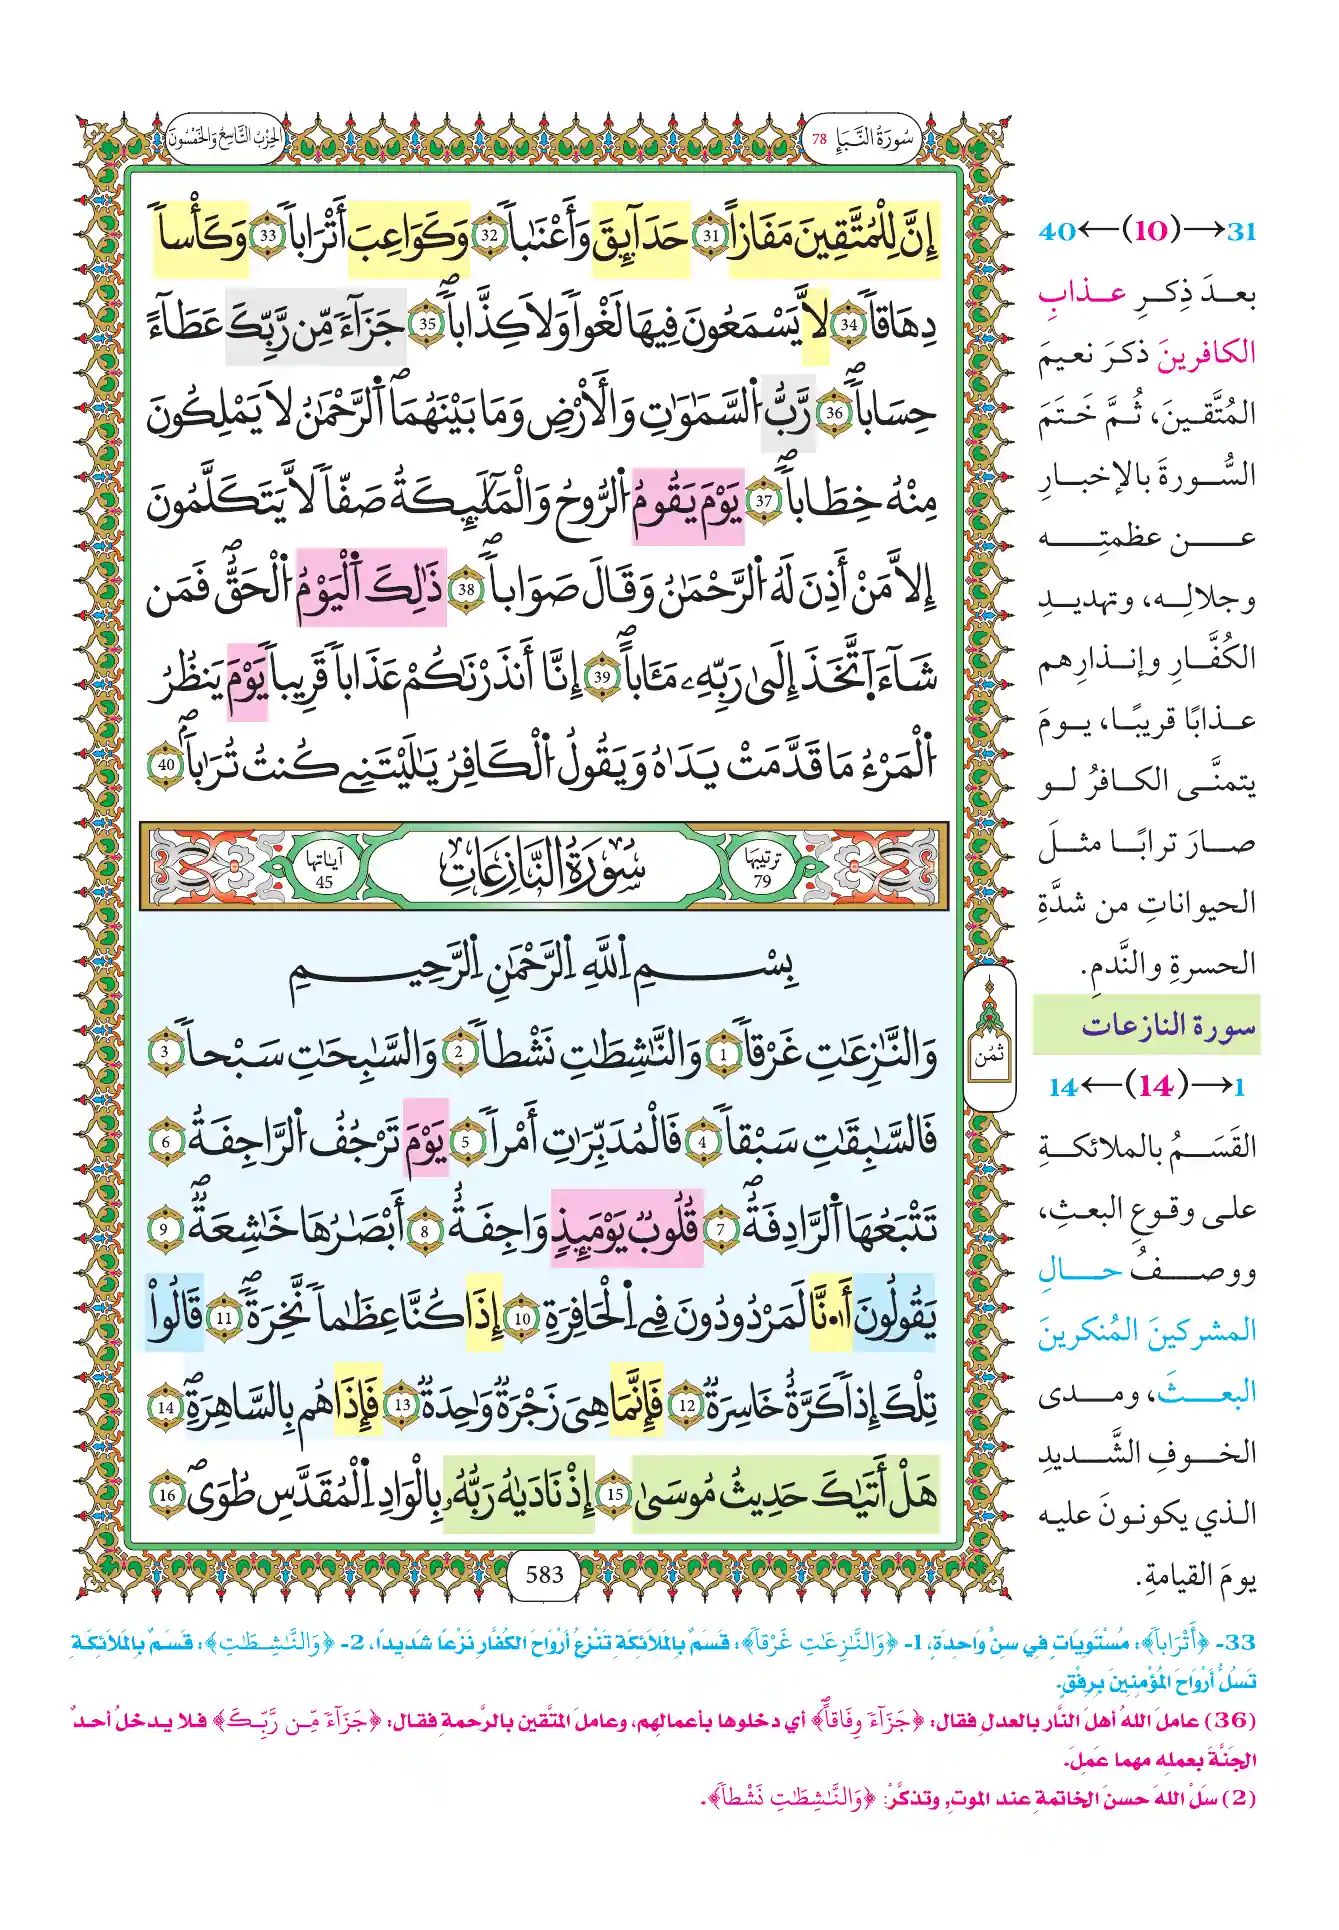 سُورَةُ النَّبَإِ 78
الحِزْبُ التَّاسِعُ وَالخَمْسُونَ
إِنَّ لِلْمُتَّقِينَ مَفَازاً 31 حَدَآئِقَ وَأَعْنَٰباً 32 وَكَوَاعِبَ أَتْرَاباً 33 وَكَأْساً
دِهَاقاً 34 لَّا يَسْمَعُونَ فِيهَا لَغْواً وَلَا كِذَّاباً 35 جَزَآءً مِّن رَّبِّكَ عَطَآءً
حِسَاباً 36 رَّبُّ السَّمَٰوَٰتِ وَالْأَرْضِ وَمَا بَيْنَهُمَا الرَّحْمَٰنُ لَا يَمْلِكُونَ
مِنْهُ خِطَاباً 37 يَوْمَ يَقُومُ الرُّوحُ وَالْمَلَٰٓئِكَةُ صَفّاً لَّا يَتَكَلَّمُونَ
إِلَّا مَنْ أَذِنَ لَهُ الرَّحْمَٰنُ وَقَالَ صَوَاباً 38 ذَٰلِكَ الْيَوْمُ الْحَقُّ فَمَن
شَآءَ اتَّخَذَ إِلَىٰ رَبِّهِۦ مَـَٔاباً 39 إِنَّا أَنذَرْنَٰكُمْ عَذَاباً قَرِيباً يَوْمَ يَنظُرُ
الْمَرْءُ مَا قَدَّمَتْ يَدَاهُ وَيَقُولُ الْكَافِرُ يَٰلَيْتَنِي كُنتُ تُرَٰباً 40
ترتيبها 79
سُورَةُ النَّازِعَاتِ
آياتها 45
بِسْمِ اللَّهِ الرَّحْمَٰنِ الرَّحِيمِ
وَالنَّٰزِعَٰتِ غَرْقاً 1 وَالنَّٰشِطَٰتِ نَشْطاً 2 وَالسَّٰبِحَٰتِ سَبْحاً 3
فَالسَّٰبِقَٰتِ سَبْقاً 4 فَالْمُدَبِّرَٰتِ أَمْراً 5 يَوْمَ تَرْجُفُ الرَّاجِفَةُ 6
تَتْبَعُهَا الرَّادِفَةُ 7 قُلُوبٌ يَوْمَئِذٍ وَاجِفَةٌ 8 أَبْصَٰرُهَا خَٰشِعَةٌ 9
يَقُولُونَ أَٰ۟نَّا لَمَرْدُودُونَ فِي الْحَافِرَةِ 10 إِذَا كُنَّا عِظَٰماً نَّخِرَةً 11 قَالُواْ
تِلْكَ إِذاً كَرَّةٌ خَاسِرَةٌ 12 فَإِنَّمَا هِيَ زَجْرَةٌ وَٰحِدَةٌ 13 فَإِذَا هُم بِالسَّاهِرَةِ 14
هَلْ أَتَىٰكَ حَدِيثُ مُوسَىٰ 15 إِذْ نَادَىٰهُ رَبُّهُۥ بِالْوَادِ الْمُقَدَّسِ طُوَى 16
ثُمُن
583
31→(10)←40
بعدَ ذِكرِ عذابِ
الكافرينَ ذكرَ نعيمَ
المُتَّقينَ، ثُمَّ خَتَمَ
السُّورةَ بالإخبارِ
عن عظمتِه
وجلالِه، وتهديدِ
الكُفَّارِ وإنذارِهم
عذابًا قريبًا، يومَ
يتمنَّى الكافرُ لو
صارَ ترابًا مثلَ
الحيواناتِ من شدَّةِ
الحسرةِ والنَّدمِ.
سورة النازعات
1→(14)←14
القَسَمُ بالملائكةِ
على وقوعِ البعثِ،
ووصفُ حالِ
المشركينَ المُنكرينَ
البعثَ، ومدى
الخوفِ الشَّديدِ
الذي يكونونَ عليه
يومَ القيامةِ.
33- ﴿أَتْرَاباً﴾: مُسْتَوِيَاتٍ فِي سِنٍّ وَاحِدَةٍ، 1- ﴿وَالنَّٰزِعَٰتِ غَرْقاً﴾: قَسَمٌ بِالمَلَائِكَةِ تَنْزِعُ أَرْوَاحَ الكُفَّارِ نَزْعًا شَدِيدًا، 2- ﴿وَالنَّٰشِطَٰتِ﴾: قَسَمٌ بِالمَلَائِكَةِ
تَسُلُّ أَرْوَاحَ المُؤْمِنِينَ بِرِفْقٍ.
(36) عاملَ اللهُ أهلَ النَّارِ بالعدلِ فقال: ﴿جَزَآءً وِفَاقاً﴾ أي دخلوها بأعمالِهم، وعاملَ المتَّقين بالرَّحمةِ فقال: ﴿جَزَآءً مِّن رَّبِّكَ﴾ فلا يدخلُ أحدٌ
الجَنَّةَ بعملِه مهما عَمِلَ.
(2) سَلْ اللهَ حسنَ الخاتمةِ عند الموتِ، وتذكَّرْ: ﴿وَالنَّٰشِطَٰتِ نَشْطاً﴾.